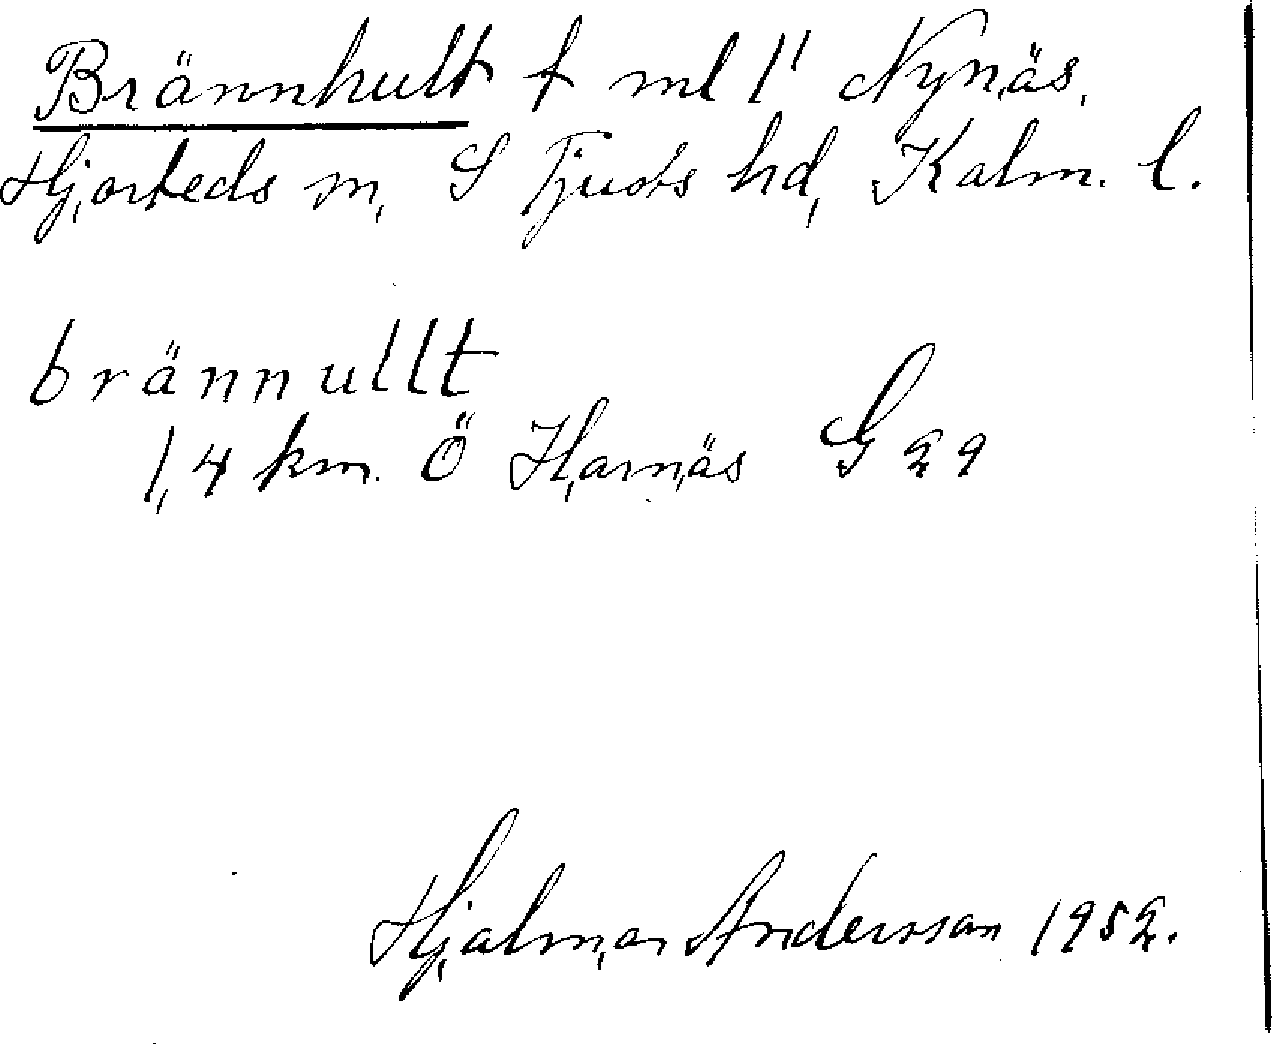 Brännhult t ml 1¹ Nynäs,
Hjorteds sn, S Tjusts hd, Kalm. l.
brännullt
1,4 km Ö Harnäs G 29
Hjalmar Andersson 1952.